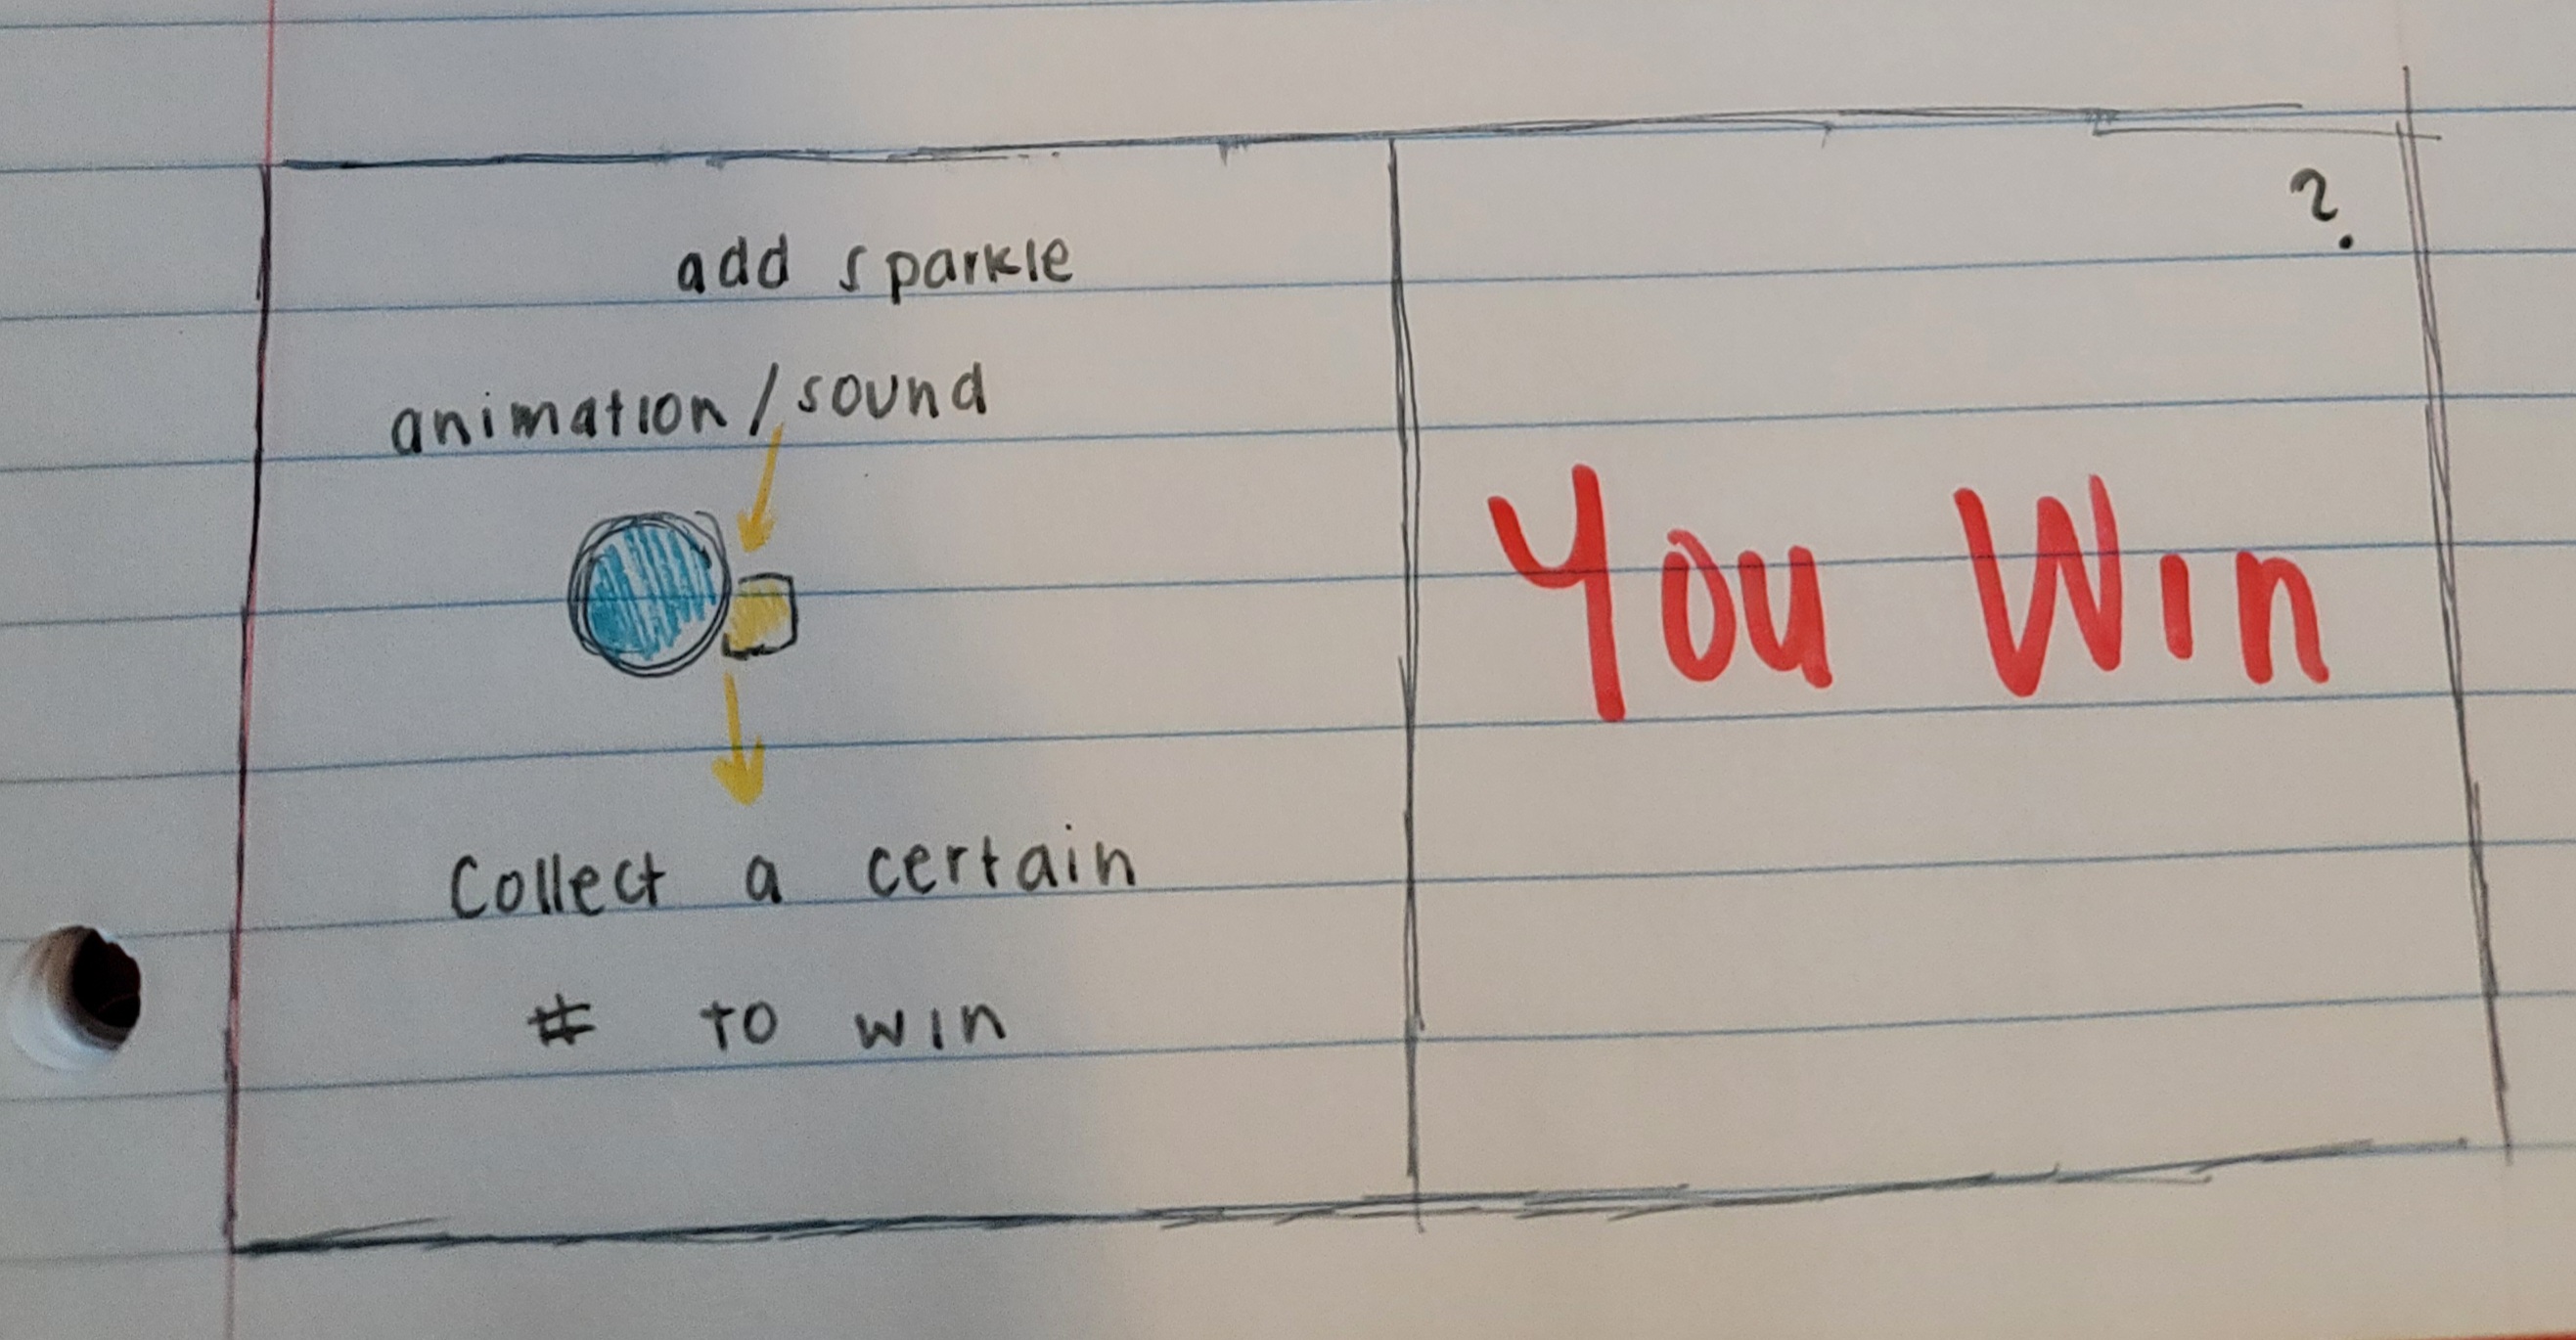 add sparkle
animation/sound
Collect a certain
# to win
?
You Win